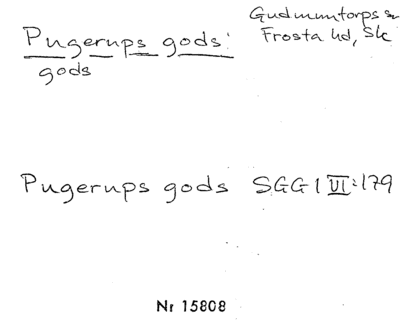 Pugerups gods:
gods
Gudmuntorps sn
Frosta hd, Sk
Pugerups gods SGG 1 VI:179
Nr 15808